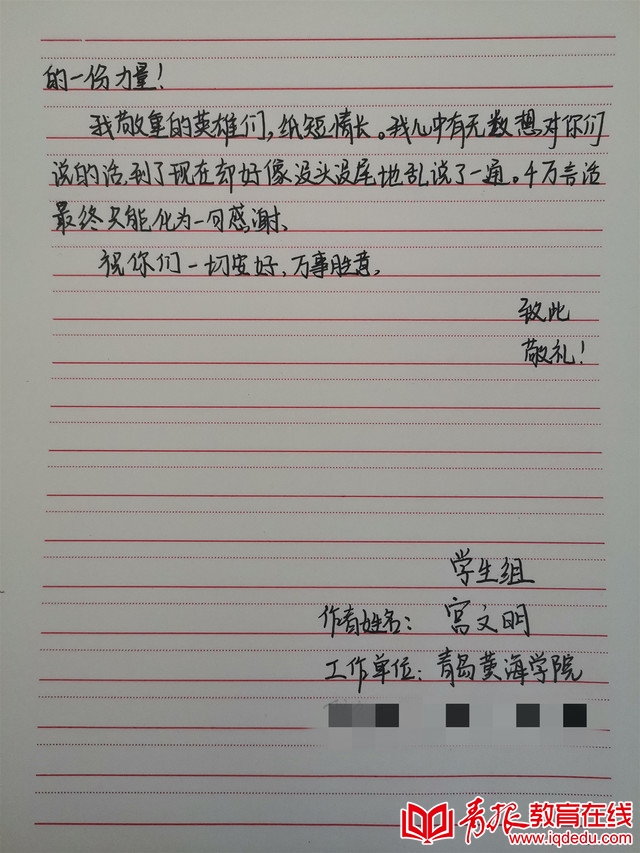 的一份力量！
我敬重的英雄们，纸短情长。我心中有无数想对你们
说的话，到了现在却好像没头没尾地乱说了一通。千万言语
最终只能化为一句感谢、
祝你们一切安好、万事胜意、
致此
敬礼！
学生组
作者姓名：宫文明
工作单位：青岛黄海学院
青报教育在线
www.iqdedu.com